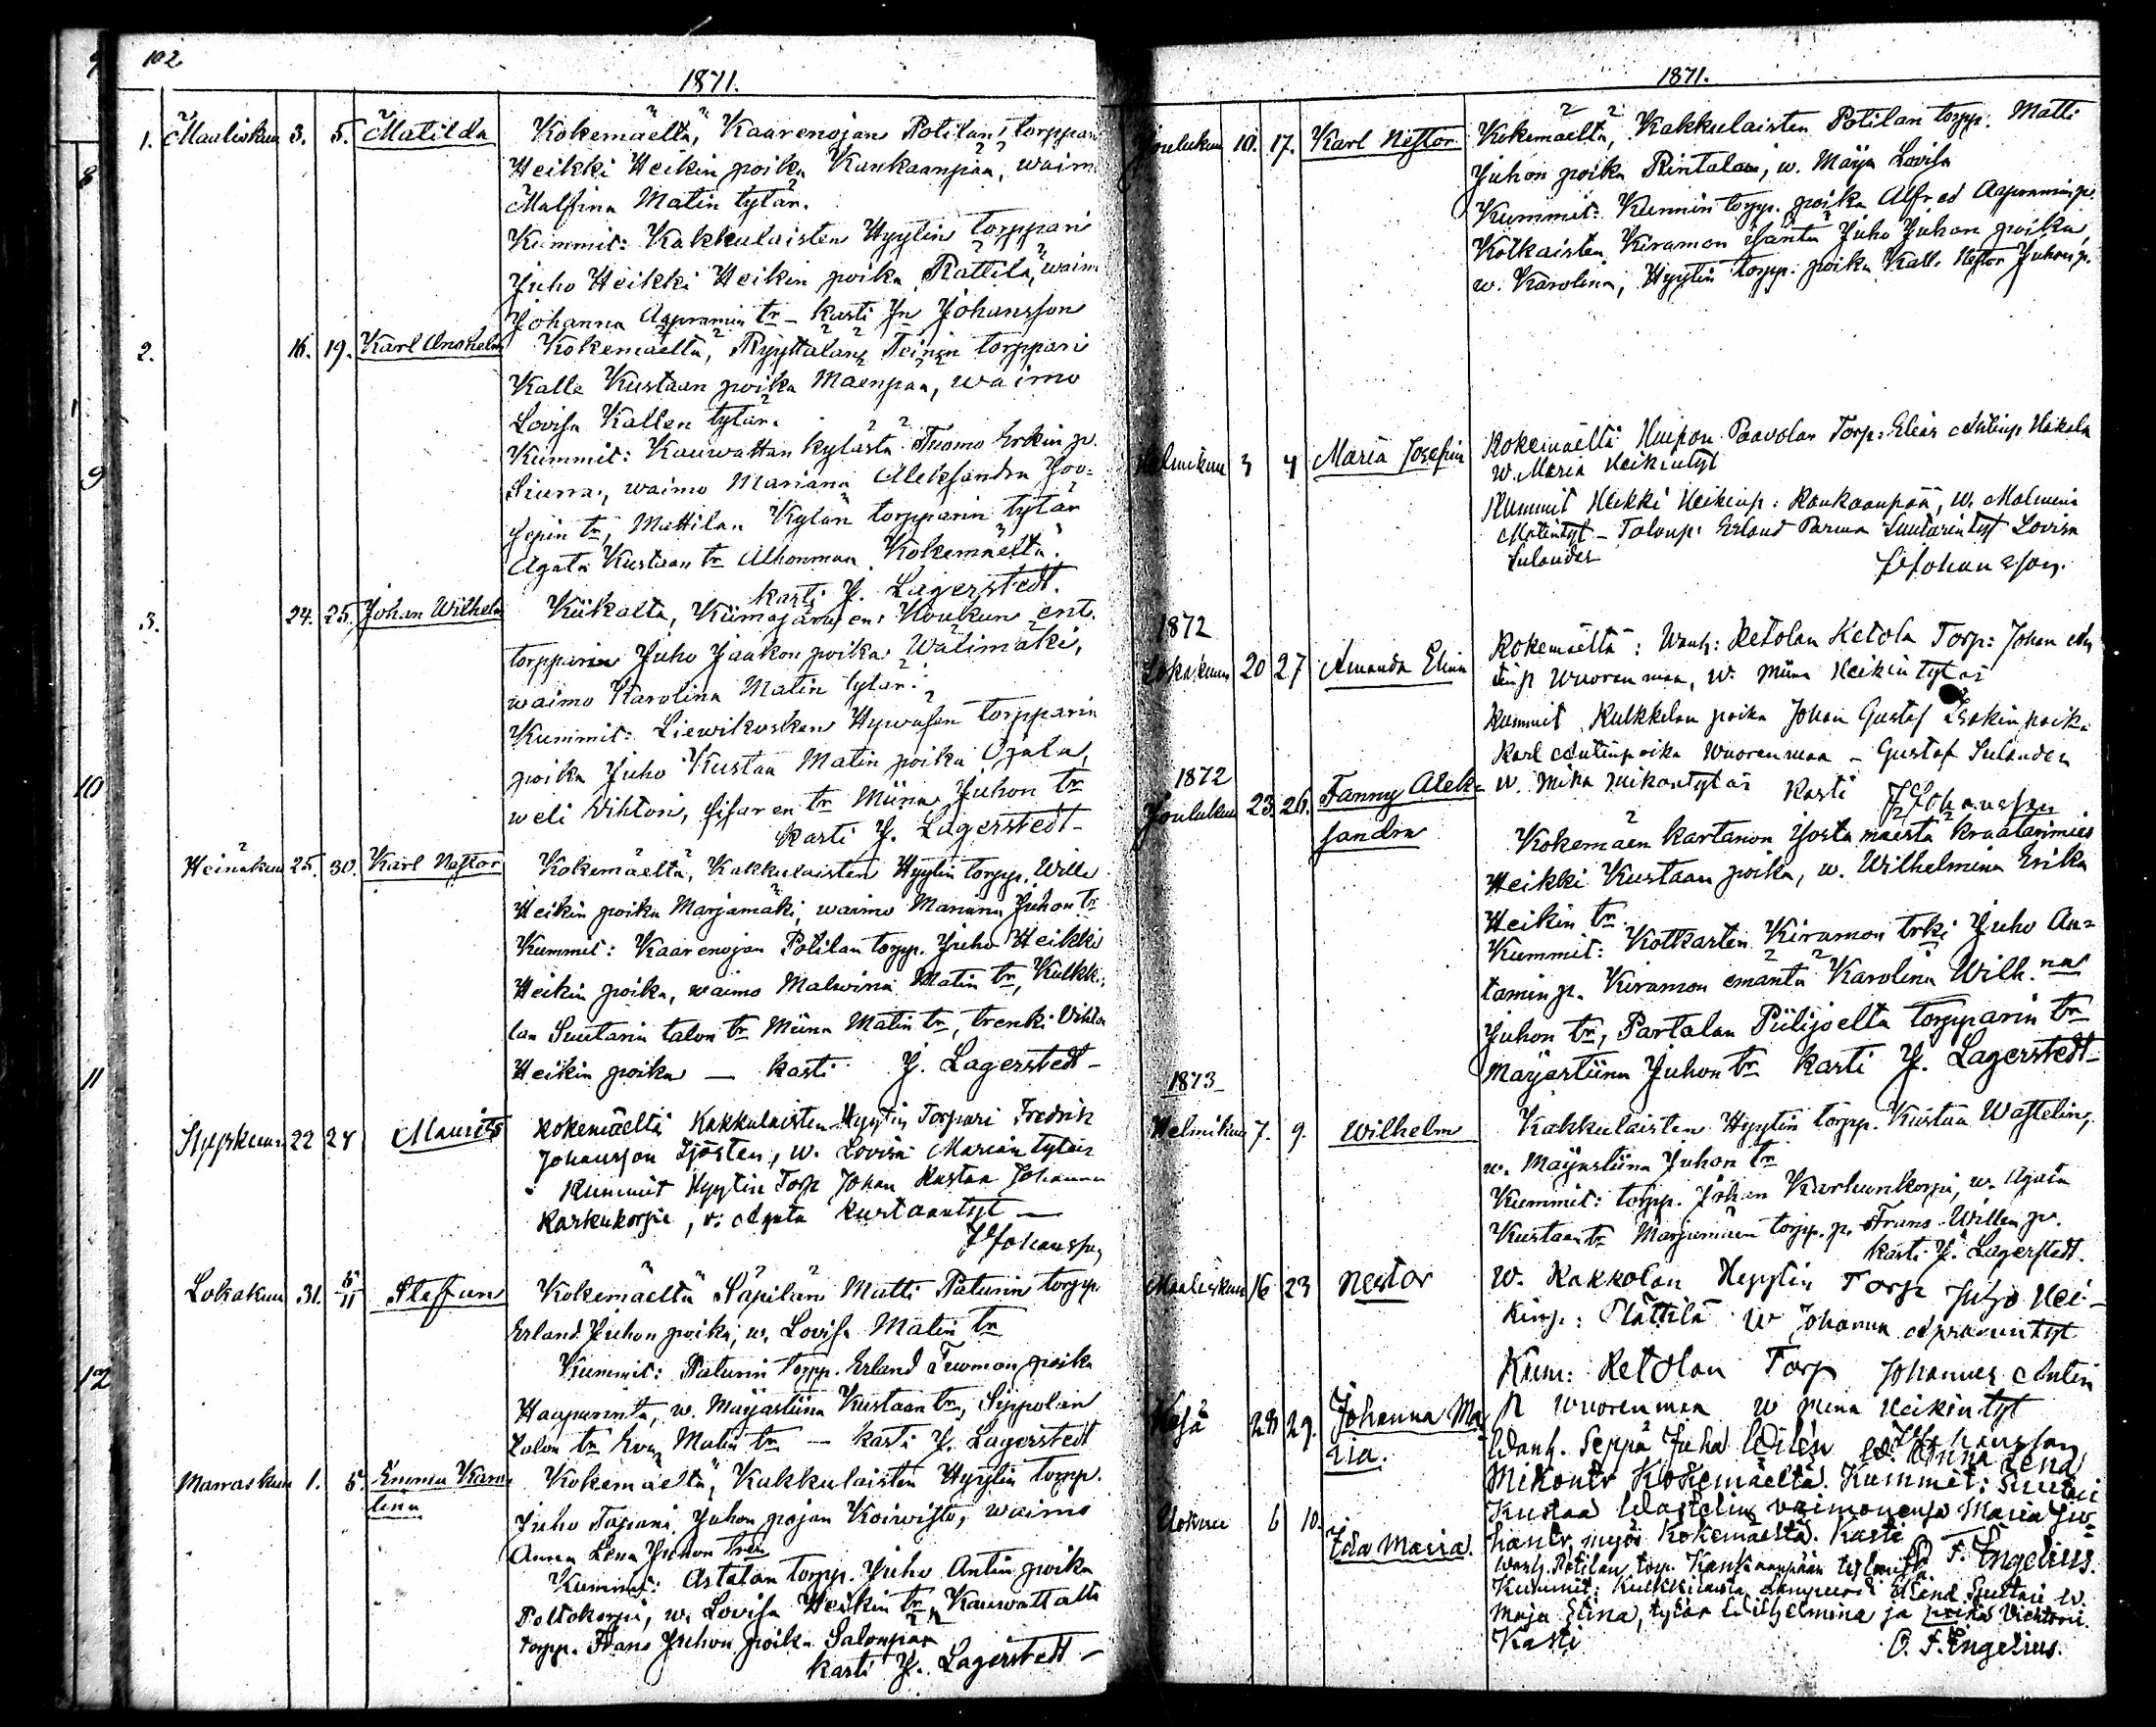 102
1871.
1. Maaliskuu 3. 5. Matilda Kokemäeltä, Kaarenojan Potilan torppari
Heikki Heikin poika Kankaanpää, waimo
Malfina Matin tytär.
Kummit: Kakkulaisten Hyytin torppari
Juho Heikki Heikin poika Rättilä, waimo
Johanna Aapramin tr – kasti Jn Johansson
2. 16. 19. Karl Anshelm Kokemäeltä, Ryyttälän Teinin torppari
Kalle Kustaan poika Mäenpää, waimo
Lovisa Kallen tytär.
Kummit: Kauwattan kylästä Tuomo Erkin p.
Siurra, waimo Mariana Aleksandra Joo=
sepin tr, Mattilan Kylän torpparin tytär
Agata Kustaan tr Alhonmaa Kokemäeltä.
kasti J. Lagerstedt.
3. 24. 25. Johan Wilhelm Kiikalta, Kiimajärwen Koukun ent.
torpparin Juho Jaakon poika Wälimäki,
waimo Karolina Matin tytär.
Kummit: Liewikosken Hywäsen torpparin
poika Juho Kustaa Matin poika Ojala,
weli Vihtori, sisaren tr Miina Juhon tr
kasti J. Lagerstedt–
Heinäkuu 25. 30. Karl Nestor Kokemäeltä, Kakkulaisten Hyytin torpp. Wille
Heikin poika Marjamäki, waimo Mariana Juhon tr
Kummit: Kaarenojan Potilan torpp. Juho Heikki
Heikin poika, waimo Malwina Matin tr, Kulkki=
lan Suutarin talon tr Miina Matin tr, trenki Vihtor
Heikin poika — kasti J. Lagerstedt–
Syyskuu 22 24 Maurits Kokemäeltä Kakkulaisten Hyytin Torpari Fredrik
Johansson Sjösten, w. Lovisa Marian tytär
Kummit Hyytin Torp Johan Kustaa Johanna
Karhukorpi, v. Agata Kustaantyt —
J Johansson
Lokakuu 31. 5/11 Steffan Kokemäeltä Säpilän Matti Paturin torpp.
Erland Juhon poika, w. Lovisa Matin tr
Kummit: Paturin torpp. Erland Tuomon poika
Haapurinta, w. Majastiina Kustaan tr, Sippolan
talon tr Eva Matin tr — kasti J. Lagerstedt
Marraskuu 1. 5. Emma Karo=
lina Kokemäeltä, Kakkulaisten Hyytin torpp.
Juho Tapani Juhon pojan Koiwisto, waimo
Anna Lena Juhon tren
Kummit: Astalan torpp. Juho Antin poika
Poltokorpi, w. Lovisa Heikin tr, Kauwattalta
torpp. Frans Juhon poika Salonpää
kasti J. Lagerstedt –
1871.
Joulukuu 10. 17. Karl Nestor Kokemäeltä, Kakkulaisten Potilan torpp. Matti
Juhon poika Rintalan, w. Maija Lovisa
Kummit: Kunnin torpp. poika Alfred Aapramin p.
Kotkaisten Kiramon isäntä Juho Juhan poika,
w. Karolina, Hyytin torpp. poika Kalle Nestor Juhon p.
Helmikuu 3 4 Maria Josefin Kokemäeltä Huipon Paavolan Torp: Elias Antinp Hakala
w. Maria Heikintyt
Kummit Heikki Heikinp: Kankaanpää, w. Malwina
Matintyt – Talonp: Erland Parma Suutarintyt Lovisa
Sulander
J Johansson.
1872
Lokakuu 20 27 Amanda Elina Kokemäeltä: Wanh: Ketolan Ketola Torp: Johan An
tinp Wuorenmaa, w. Miina Heikin tytär
Kummit Kulkkilan poika Johan Gustaf Isakin poika
Karl Antinpoika Wuorenmaa – Gustaf Sulander
w. Mika Mikontytär Kasti J Johansson
1872
Joulukuu 23. 26. Fanny Alek=
sandra Kokemäen kartanon Josta mäestä kraatarimies
Heikki Kustaan poika, w. Wilhelmina Erika
Heikin tr.
Kummit: Kotkasten Kiramon trki Juho An=
tamin p. Kiramon emäntä Karolina Wilh.na
Juhon tr, Partalan Piilijoelta torpparin tr
Majastiina Juhon tr kasti J. Lagerstedt–
1873
Helmikuu 7. 9. Wilhelm Kakkulaisten Hyytin torpp. Kustaa Wastelin,
w. Majastiina Juhon tr
Kummit: torpp. Johan Karhunkorpi, w. Agata
Kustaan tr Marjamäen torpp. p. Frans Willen p.
kasti J. Lagerstedt.
Maaliskuu 16 23 Nestor W. Kakkolan Hyytin Torp Juho Hei–
kinp.: Rättilä w Johanna Apramintyt
Kum: Ketolan Torp Johannes Antin
p Wuorenmaa w Miina Heikintyt
J Johansson
Kesä 28 29. Johanna Ma
ria. Wanh. Seppä Juha Widén w. Anna Lena
Mikontr Kokemäeltä. Kummit: Suutari
Kustaa Wastelin vaimonensa Maria Ju=
hantr, myös Kokemäeltä. Kasti
O. F. Engelius.
Elokuu 6 10. Ida Maria. Wanh. Potilan torp. Kankaanpään
Kummit: Kulkkilasta Erland Suutari w.
Maja Stina, tytär Wilhelmina ja poika Viktori.
Kasti O. F. Engelius.
8
9
10
11
12